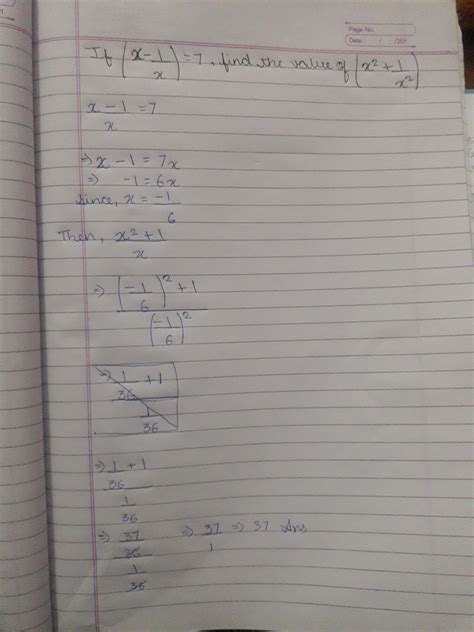 Page No.
Date: / /201
If (x-1/x) = 7, find the value of (x²+1/x²)
x-1/x = 7
⇒ x - 1 = 7x
⇒ -1 = 6x
Since, x = -1/6
Then, x²+1/x
⇒ (-1/6)² + 1/(-1/6)²
⇒ 1/36 + 1/1/36
⇒ 1/36 + 1/1/36
⇒ 37/36/1/36 ⇒ 37/1 ⇒ 37 Ans